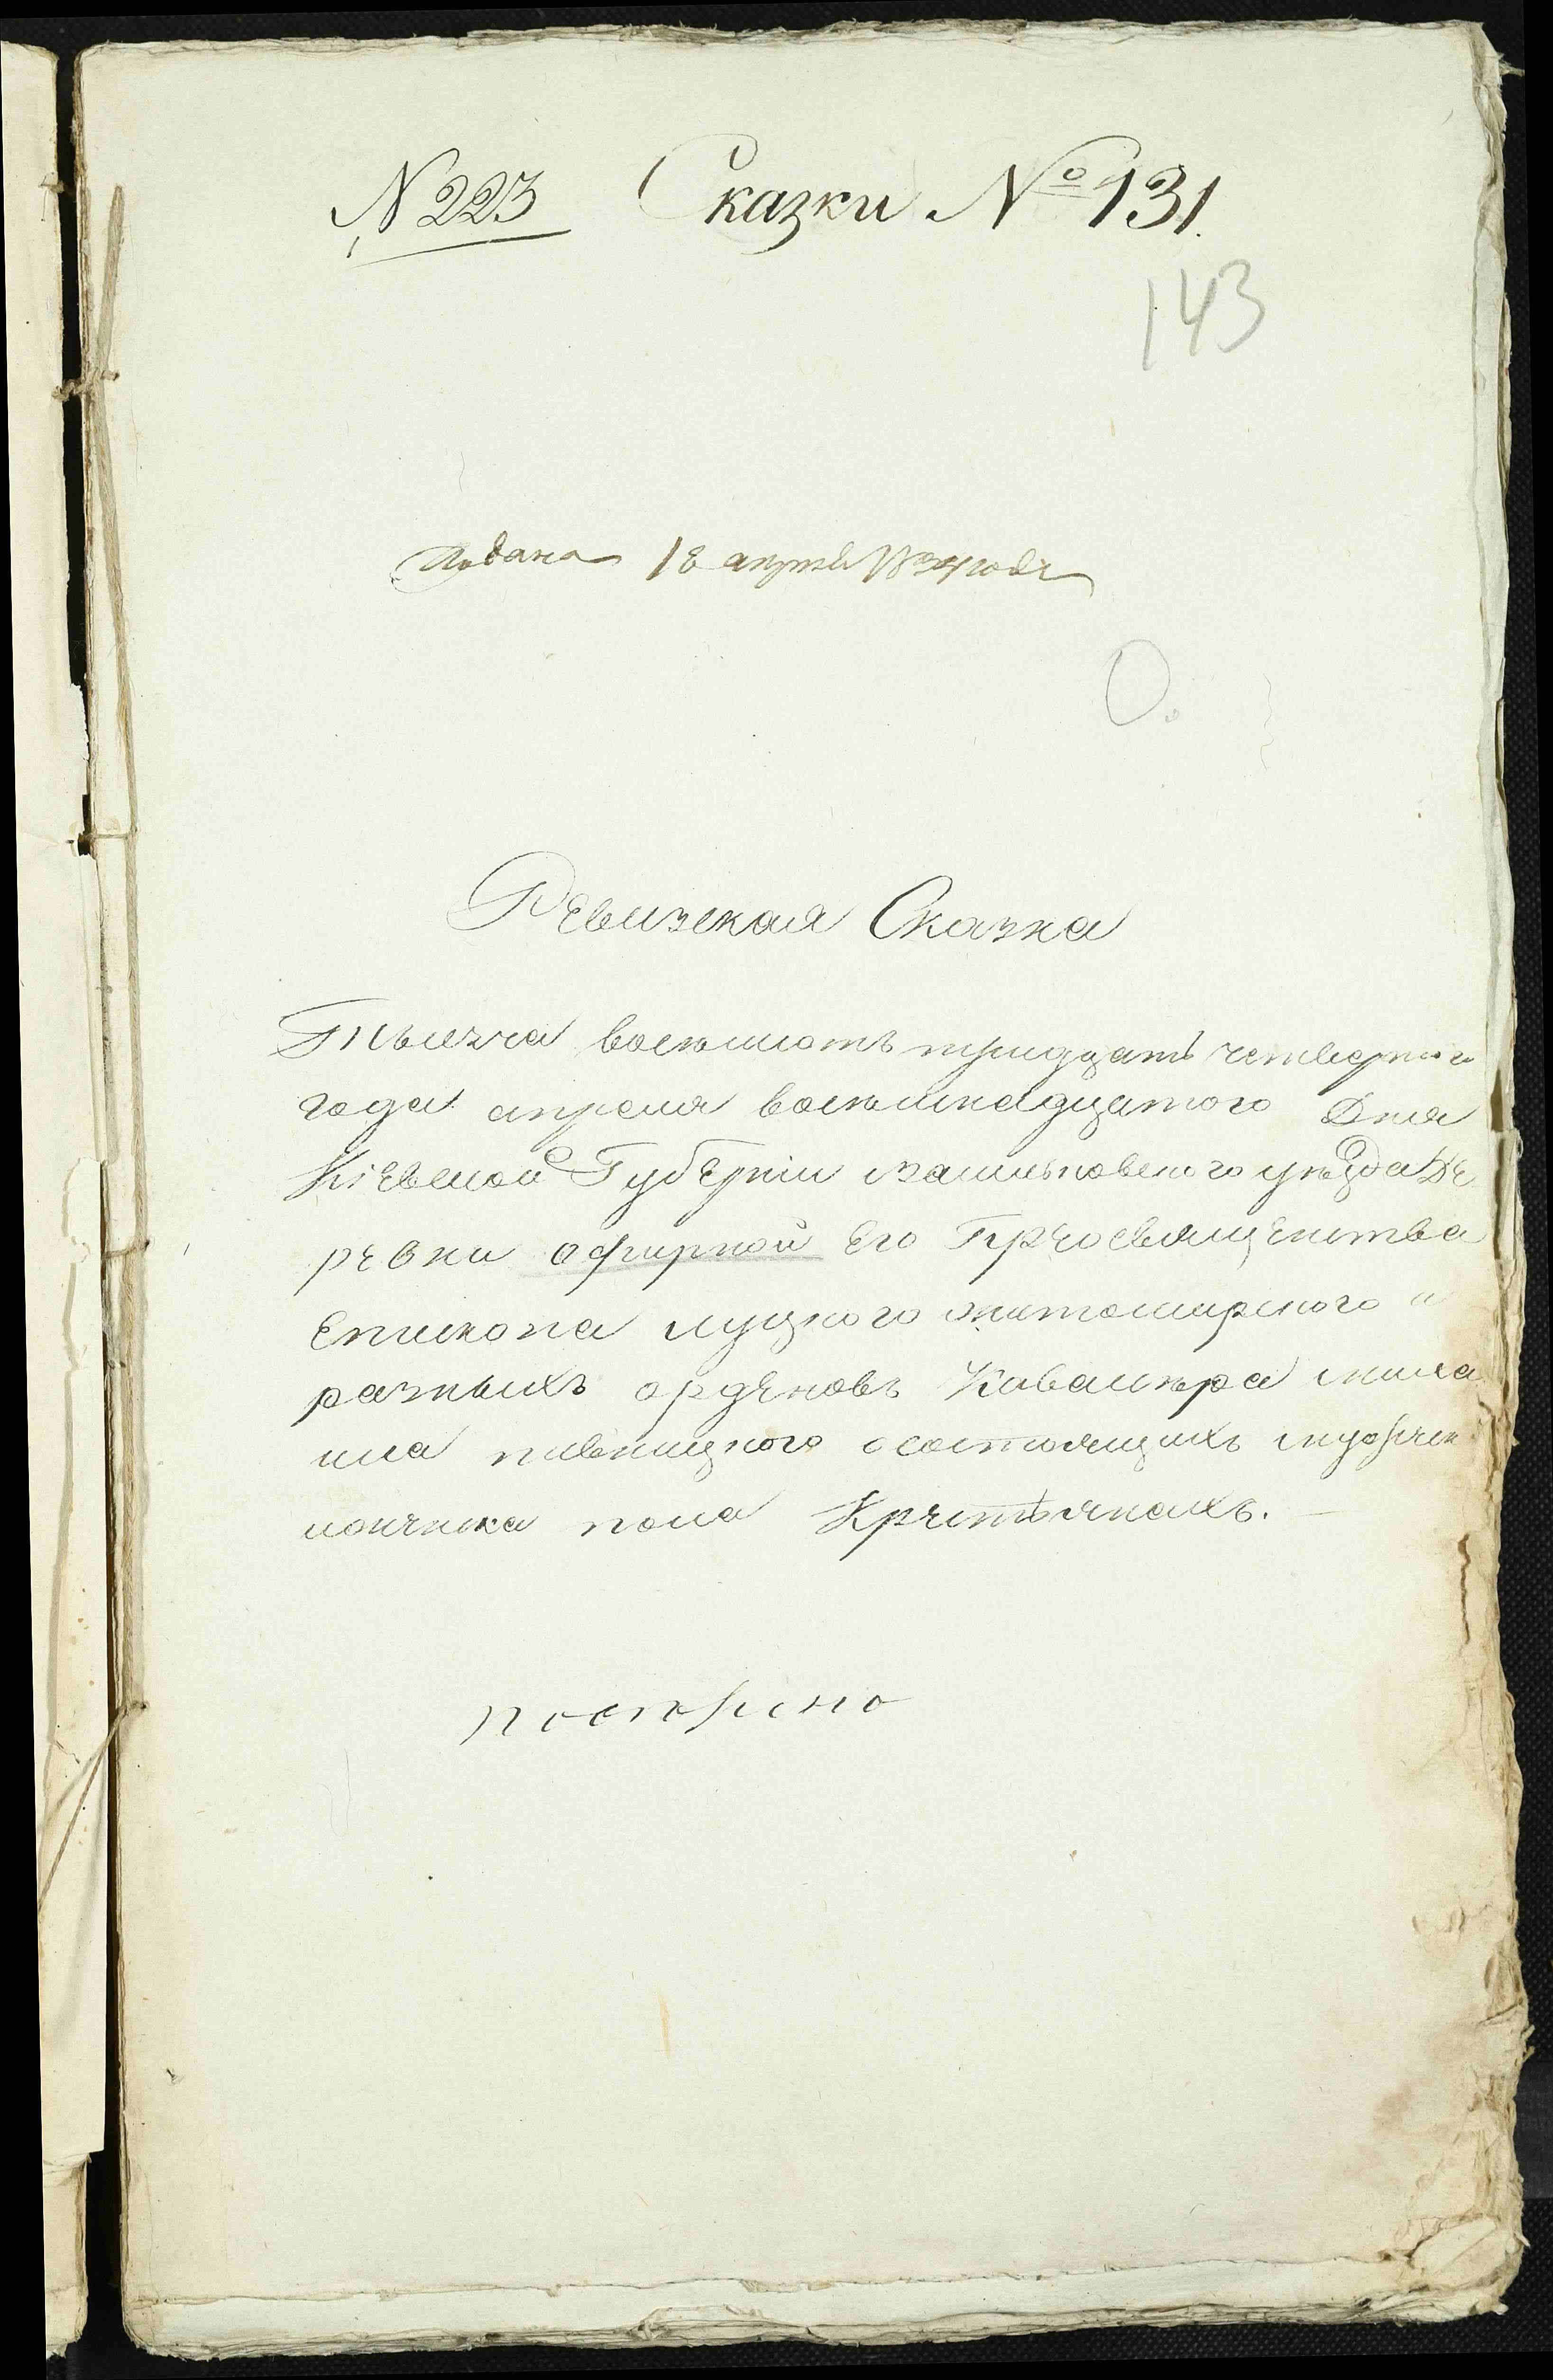 N 223 Сказки № 131.
143
Подана 18 апреля 1834 года
О.
Ревизская Сказка
Тысяча восемьсотъ тридцать четвертого
года апреля восемнадцатого Дня
Кіевской Губерніи васильковского уѣзда Де
ревни офирной Его Преосвященства
Епископа луцкого житомирского и
разныхъ орденовъ Кавалера миха
ила пивницкого осостоящихъ мужен
ского пола Крестьянахъ.